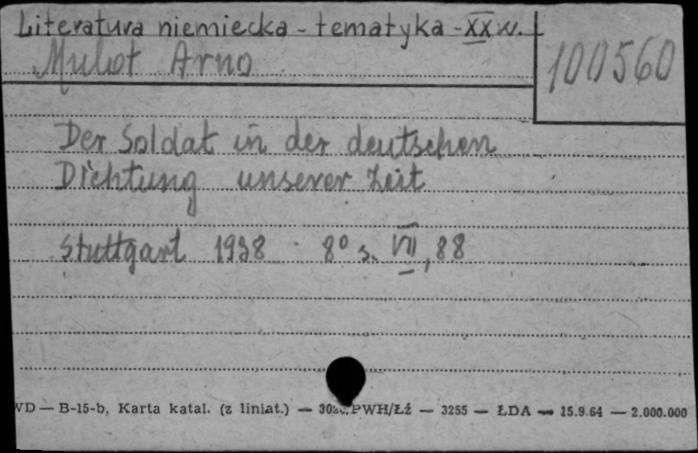 Literatura niemiecka - tematyka - XX w.
Mulot Arno
100560
Der Soldat in der deutschen
Dichtung unserer Zeit
Stuttgart 1938 8° s. VII, 88
VD — B-15-b, Karta katal. (z liniat.) — PWH/Łź — 3255 — ŁDA — 15.9.64 — 2.000.000